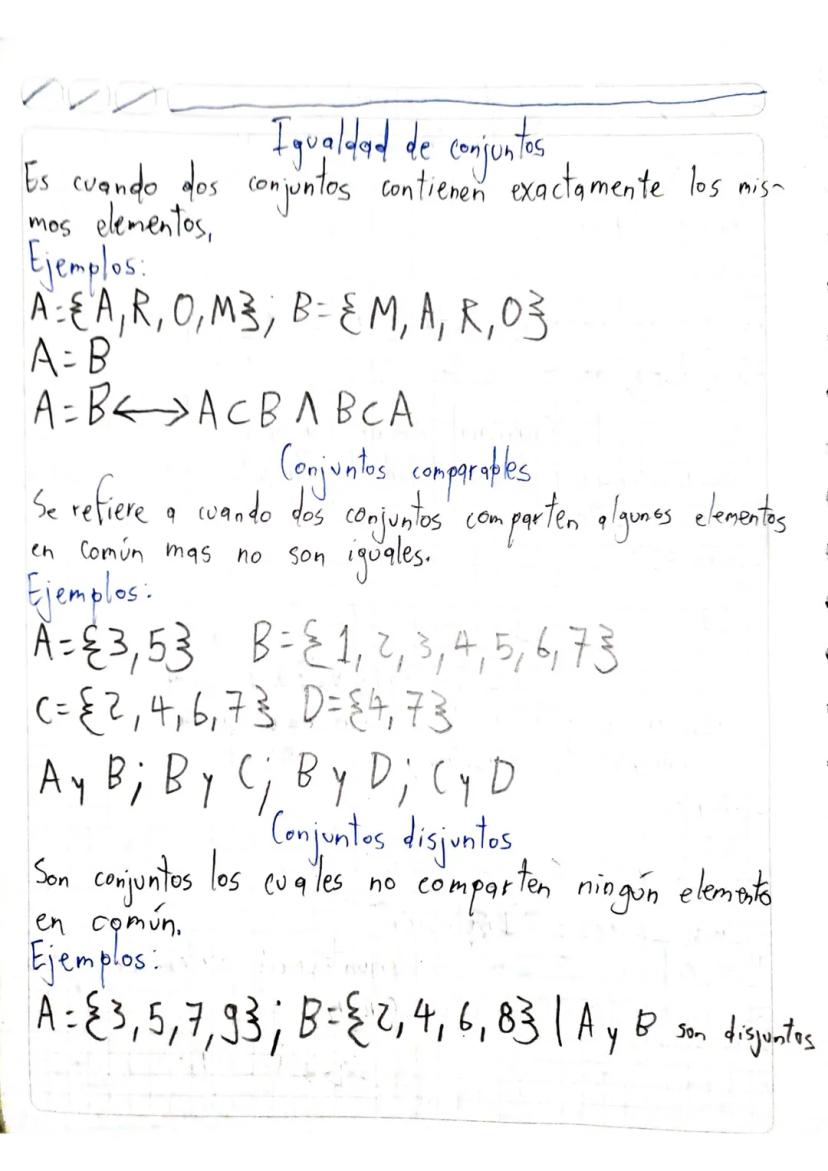 Igualdad de conjuntos
Es cuando dos conjuntos contienen exactamente los mis-
mos elementos,
Ejemplos:
A={A,R,O,M}; B={M,A,R,O}
A=B
A=B⟷A⊂B ∧ B⊂A
Conjuntos comparables
Se refiere a cuando dos conjuntos comparten algunos elementos
en común mas no son iguales.
Ejemplos:
A={3,5} B={1,2,3,4,5,6,7}
C={2,4,6,7} D={4,7}
A y B; B y C; B y D; C y D
Conjuntos disjuntos
Son conjuntos los cuales no comparten ningún elemento
en común.
Ejemplos:
A={3,5,7,9}; B={2,4,6,8} | A y B son disjuntos